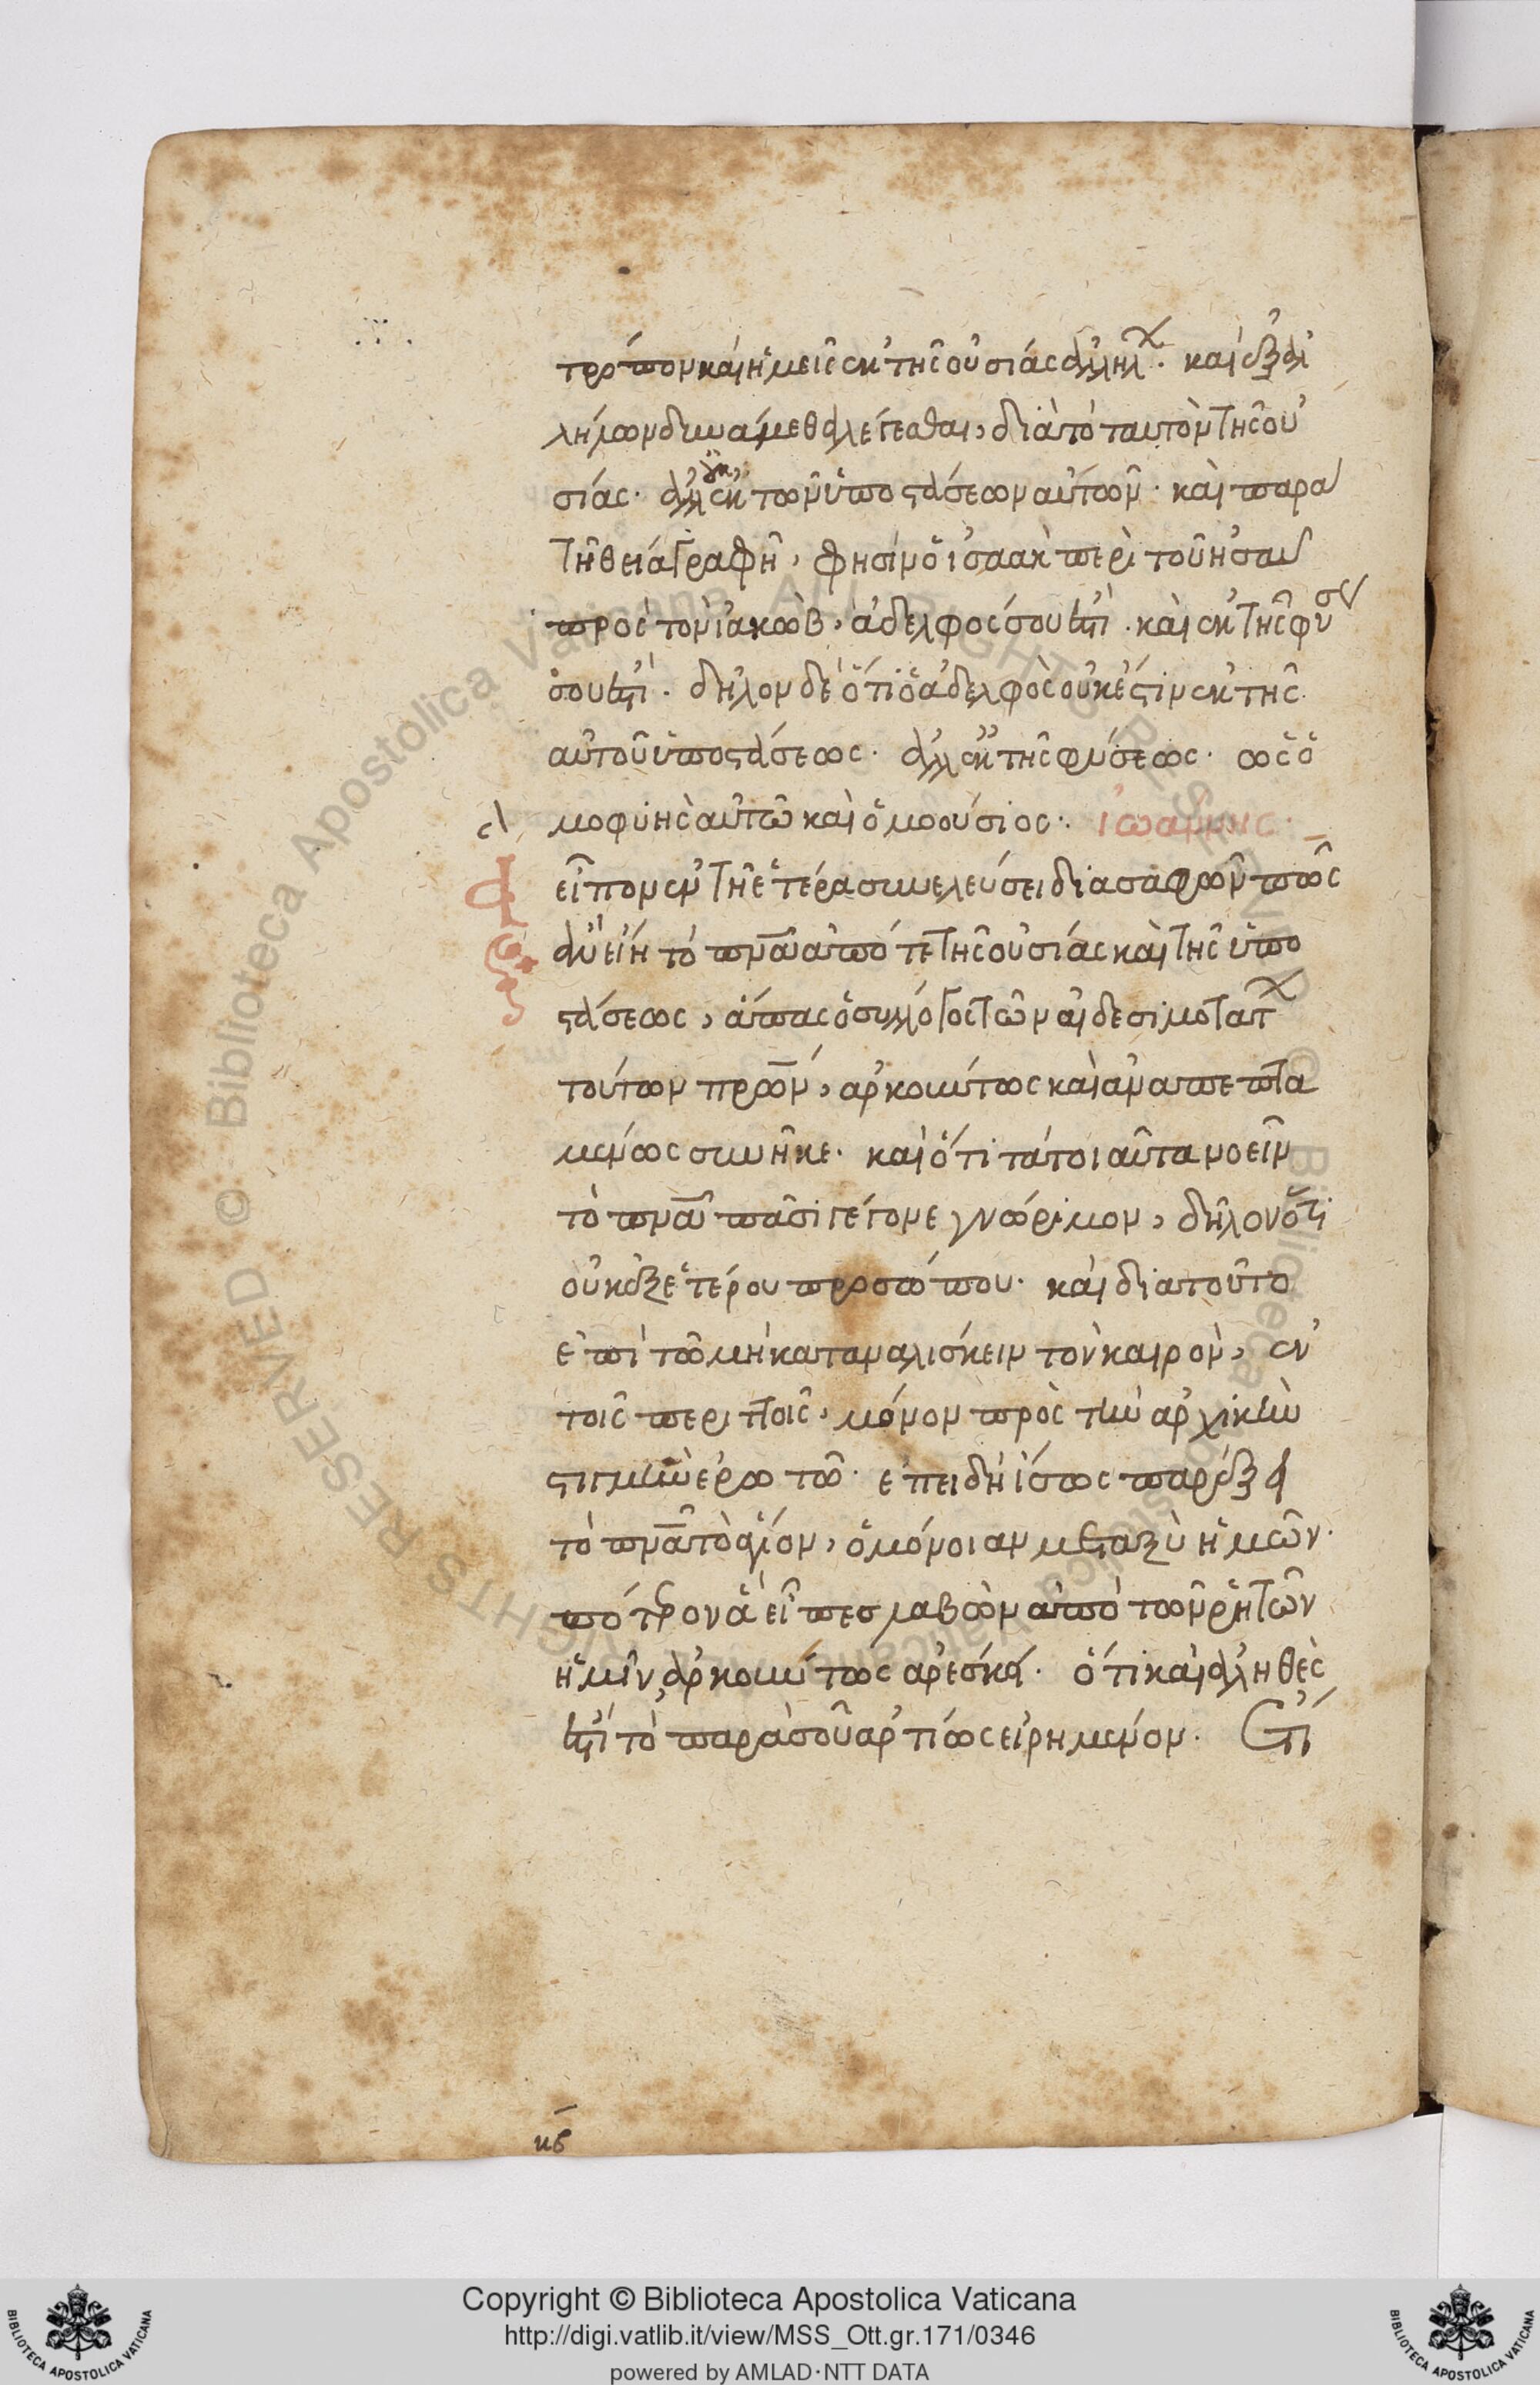 τρόπον καὶ ἡμεῖς ἐκ τῆς οὐσίας ἀλλήλ. καὶ ἐξ ἀλ
λήλων δυνάμεθα λέγεσθαι, διὰ τὸ ταυτὸν τῆς οὐ
σίας. ἀλλ' οὐκ ἐκ τῶν ὑποστάσεων αὐτῶν. καὶ παρὰ
τῇ θείᾳ γραφῇ, φησὶν ὁ ἰσαὰκ περὶ τοῦ ἠσαῦ
πρὸς τὸν ἰακώβ, ἀδελφός σου ἐστί. καὶ ἐκ τῆς φύσ
σου ἐστί. δῆλον δὲ ὅτι ὁ ἀδελφὸς οὐκ ἔστιν ἐκ τῆς
αὐτοῦ ὑποστάσεως. ἀλλ' ἐκ τῆς φύσεως. ὡς ὁ
μοφυὴς αὐτῶ καὶ ὁμοούσιος. ἰωάννης.
εἶπον ἐν τῇ ἑτέρα συνελεύσει διασαφῶν πῶς
ἂν εἴη τὸ πνα ἀπό τε τῆς οὐσίας καὶ τῆς ὑπο
στάσεως, ἅπας ὁ σύλλογος τῶν αἰδεσιμοτάτ
τούτων πρων, ἀρκούντως καὶ ἀναπεπτα
μένως συνῆκε. καὶ ὅτι τὰ τοιαῦτα νοεῖν
τὸ πνα πᾶσι γέγονε γνώριμον, δηλονότι
οὐκ ἐξ ἑτέρου προσώπου. καὶ διατοῦτο
ἐπὶ τῶ μὴ καταναλίσκειν τὸν καιρὸν, ἐν
τοῖς περιττοῖς, μόνον πρὸς τὴν ἀρχικὴν
στιγμὴν ἐρωτῶ. ἐπειδὴ ἴσως παρέξει
τὸ πνα τὸ ἅγιον, ὁμόνοιαν μεταξὺ ἡμῶν.
πότερον ἃ εἶπες λαβὼν ἀπὸ τῶν ῥητῶν
ἡμῖν, ἀρκούντως ἀρέσκει. ὅτι καὶ ἀληθές
ἐστί τὸ παρὰ σοῦ ἀρτίως εἰρημένον. Ἔτι
κβ
Copyright © Biblioteca Apostolica Vaticana
http://digi.vatlib.it/view/MSS_Ott.gr.171/0346
powered by AMLAD·NTT DATA
BIBLIOTECA APOSTOLICA VATICANA
BIBLIOTECA APOSTOLICA VATICANA